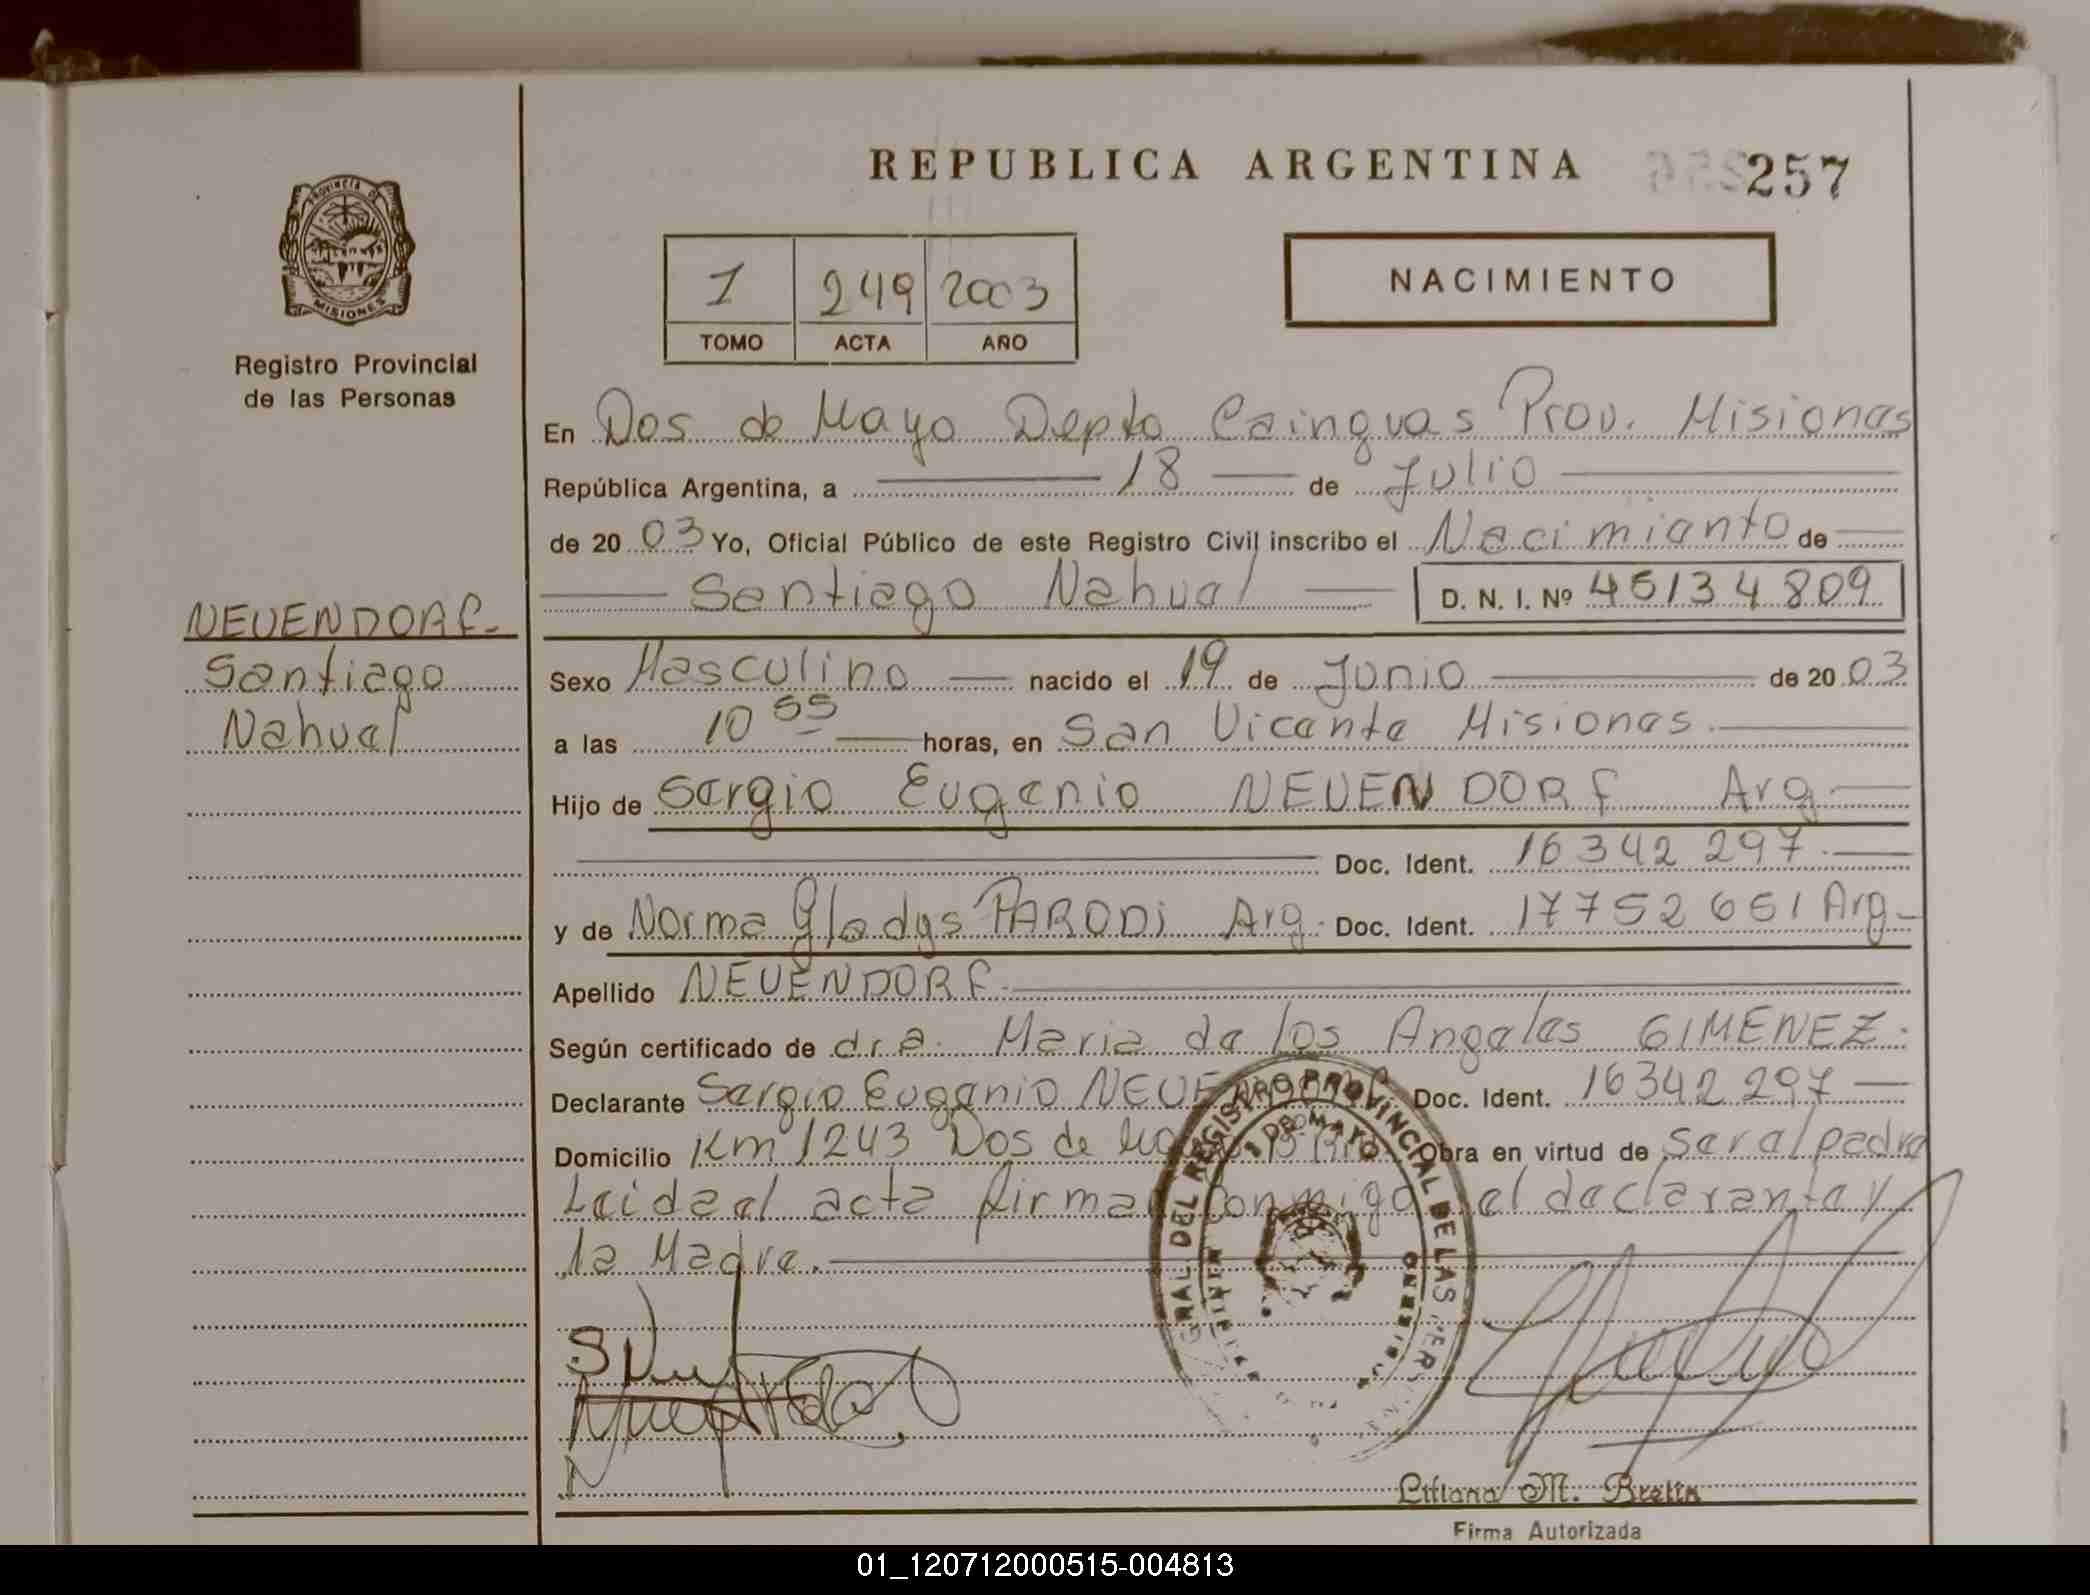 REPUBLICA ARGENTINA 257
PROVINCIA DE
MISIONES
Registro Provincial
de las Personas
1 249 2003
TOMO ACTA AÑO
NACIMIENTO
En Dos de Mayo Depto Cainguas Prov. Misiones
República Argentina, a 18 de Julio
de 2003 Yo, Oficial Público de este Registro Civil inscribo el Nacimiento de
Santiago Nahuel D. N. I. Nº 45134809
NEUENDORF
Santiago
Nahuel
Sexo Masculino nacido el 19 de Junio de 2003
a las 10 55 horas, en San Vicente Misiones.
Hijo de Sergio Eugenio NEUENDORF Arg
Doc. Ident. 16342297.
y de Norma Gladys PARODi Arg. Doc. Ident. 17752651 Arg
Apellido NEUENDORF.
Según certificado de dra. Maria de los Angeles GIMENEZ.
Declarante Sergio Eugenio Doc. Ident. 16342297
Domicilio Km 1243 Dos de Obra en virtud de ser al padre
Leida el acta firman conmigo el declarante y
la Madre.
GRAL DEL REGISTRO PROVINCIAL DE LAS
DE MAYO
Liliana M. Brelin
Firma Autorizada
01_120712000515-004813